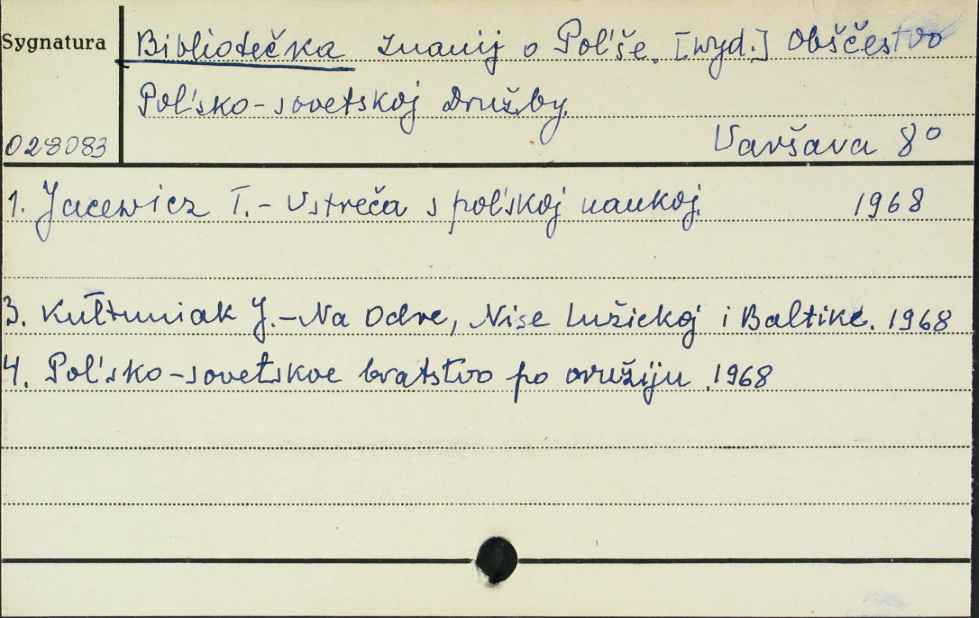 Sygnatura
Bibliotečka znanij o Pol'še. [wyd.] Obščestvo
Pol'sko-sovetskoj Družby.
028083
Varšava 8°
1. Jacewicz T. - Vstreča s pol'skoj naukoj. 1968
3. Kułtuniak J. - Na Odre, Nise Lužickoj i Baltike. 1968
4. Pol'sko-sovetskoe bratstvo po oružiju. 1968